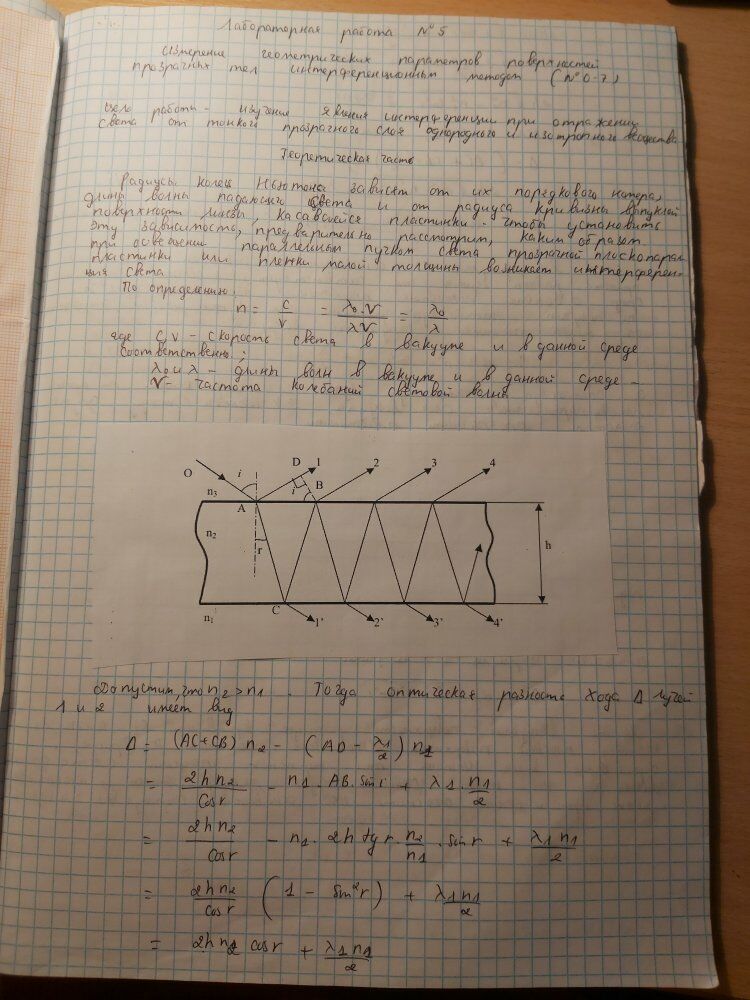 Лабораторная работа № 5
Измерение геометрических параметров поверхностей
прозрачных тел интерференционным методом (№ 0-7)
Цель работы - изучение явления интерференции при отражении
света от тонкого прозрачного слоя однородного и изотропного вещества
Теоретическая часть
Радиусы колец Ньютона зависят от их порядкового номера,
длины волны падающего света и от радиуса кривизны выпуклой
поверхности линзы, касающейся пластинки. Чтобы установить
эту зависимость, предварительно рассмотрим, каким образом
при освещении параллельным пучком света прозрачной плоскопарал
пластинки или пленки малой толщины возникает интерферен-
ция света
По определению:
n = c/v = λ₀·ν/λν = λ₀/λ
где c, v - скорость света в вакууме и в данной среде
соответственно;
λ₀ и λ - длины волн в вакууме и в данной среде -
ν - частота колебаний световой волны
O i D 1 2 3 4
n₃ A i B
n₂ r h
n₁ C 1' 2' 3' 4'
Допустим, что n₂ > n₁. Тогда оптическая разность хода Δ лучей
1 и 2 имеет вид
Δ = (AC+CB) n₂ - (AD - λ₁/2) n₁
= 2hn₂/cos r - n₁ · AB · sin i + λ₁ · n₁/2
= 2hn₂/cos r - n₁ · 2h tg r · n₂/n₁ · sin r + λ₁n₁/2
= 2hn₂/cos r (1 - sin²r) + λ₁n₁/2
= 2hn₂ cos r + λ₁n₁/2